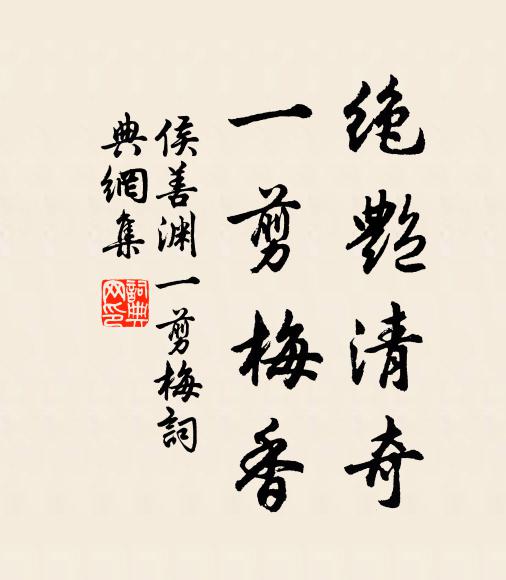 絶艷清奇
一剪梅香
侯善渊一剪梅詞
典網集
詞典網印